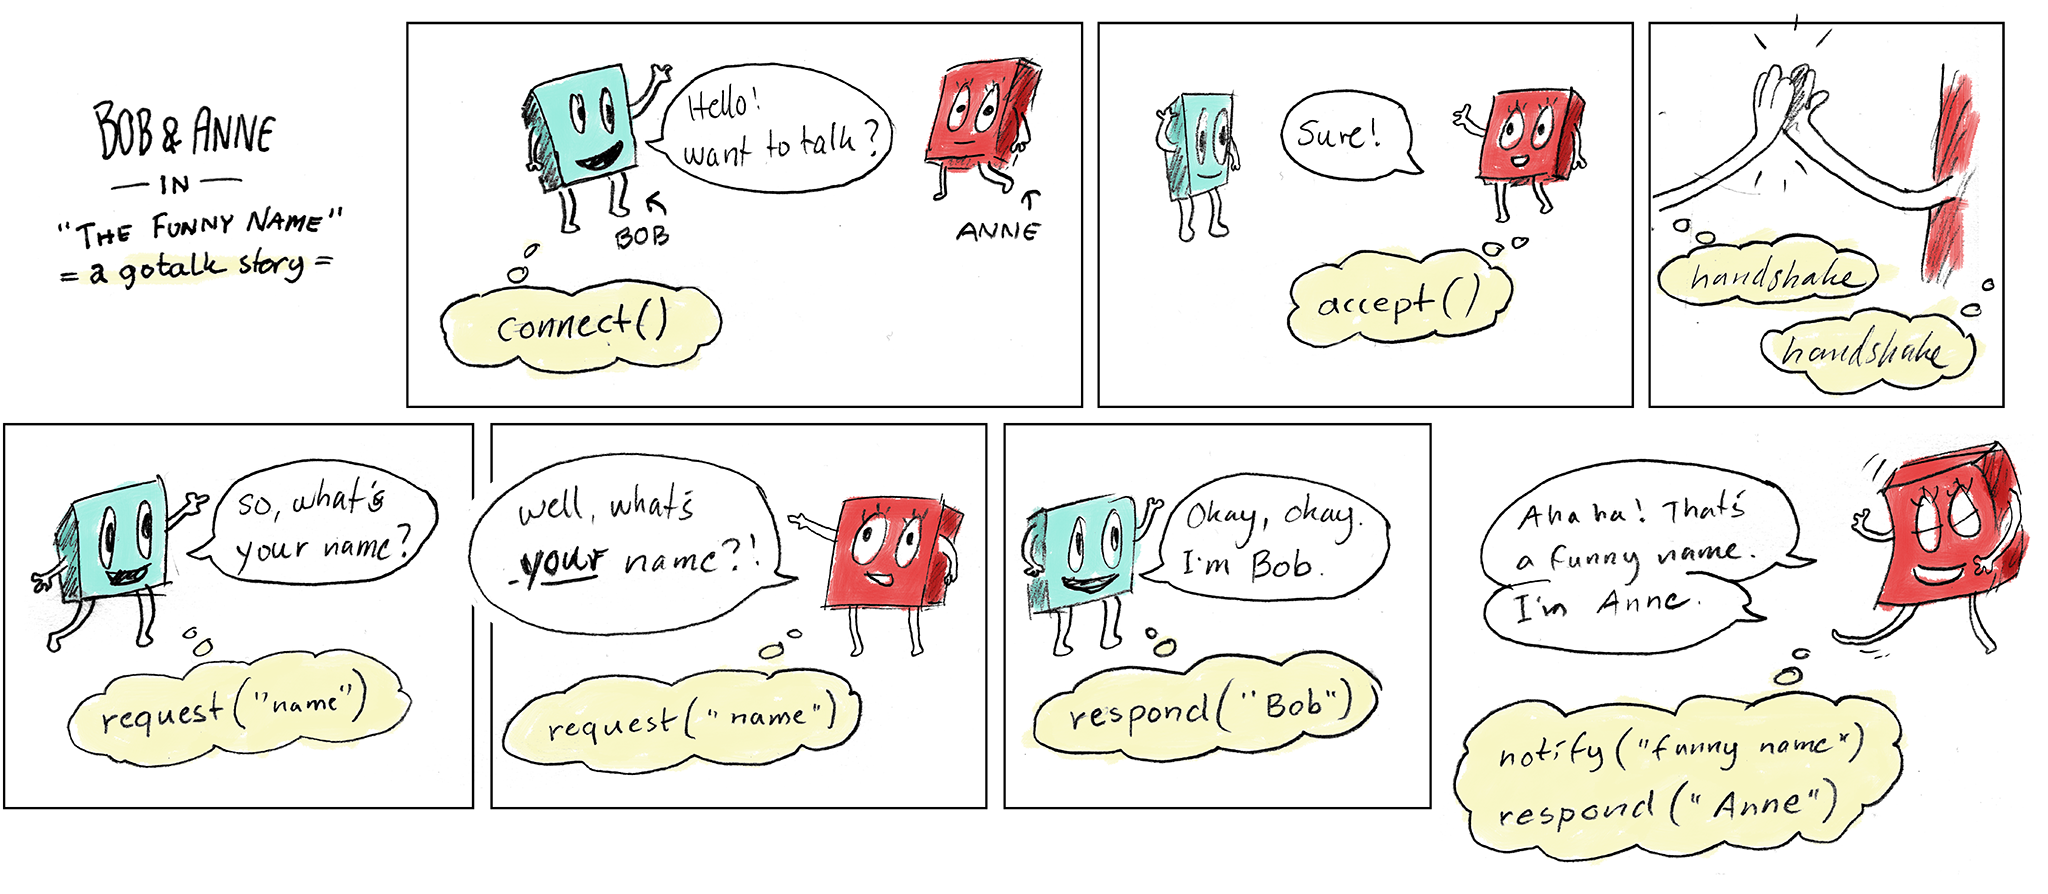 BOB & ANNE
— IN —
"THE FUNNY NAME"
= a gotalk story =
Hello!
want to talk?
BOB
ANNE
connect()
Sure!
accept()
handshake
handshake
so, what's
your name?
request("name")
well, what's
your name?!
request("name")
Okay, okay.
I'm Bob.
respond("Bob")
Aha ha! That's
a funny name.
I'm Anne.
notify("funny name")
respond("Anne")